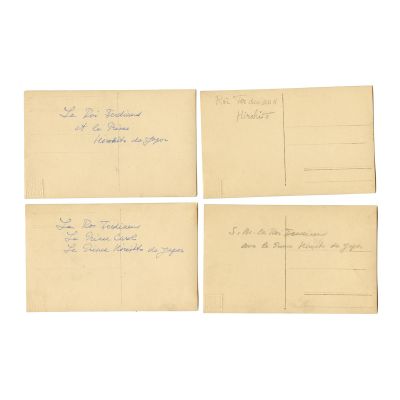 Le Roi Ferdinand
et le Prince
Hirohito de Japon
Roi Ferdinand
Hirohito
Le Roi Ferdinand
Le Prince Carol
Le Prince Hirohito de Japon
S. M. le Roi Ferdinand
avec le Prince Hirohito de Japon